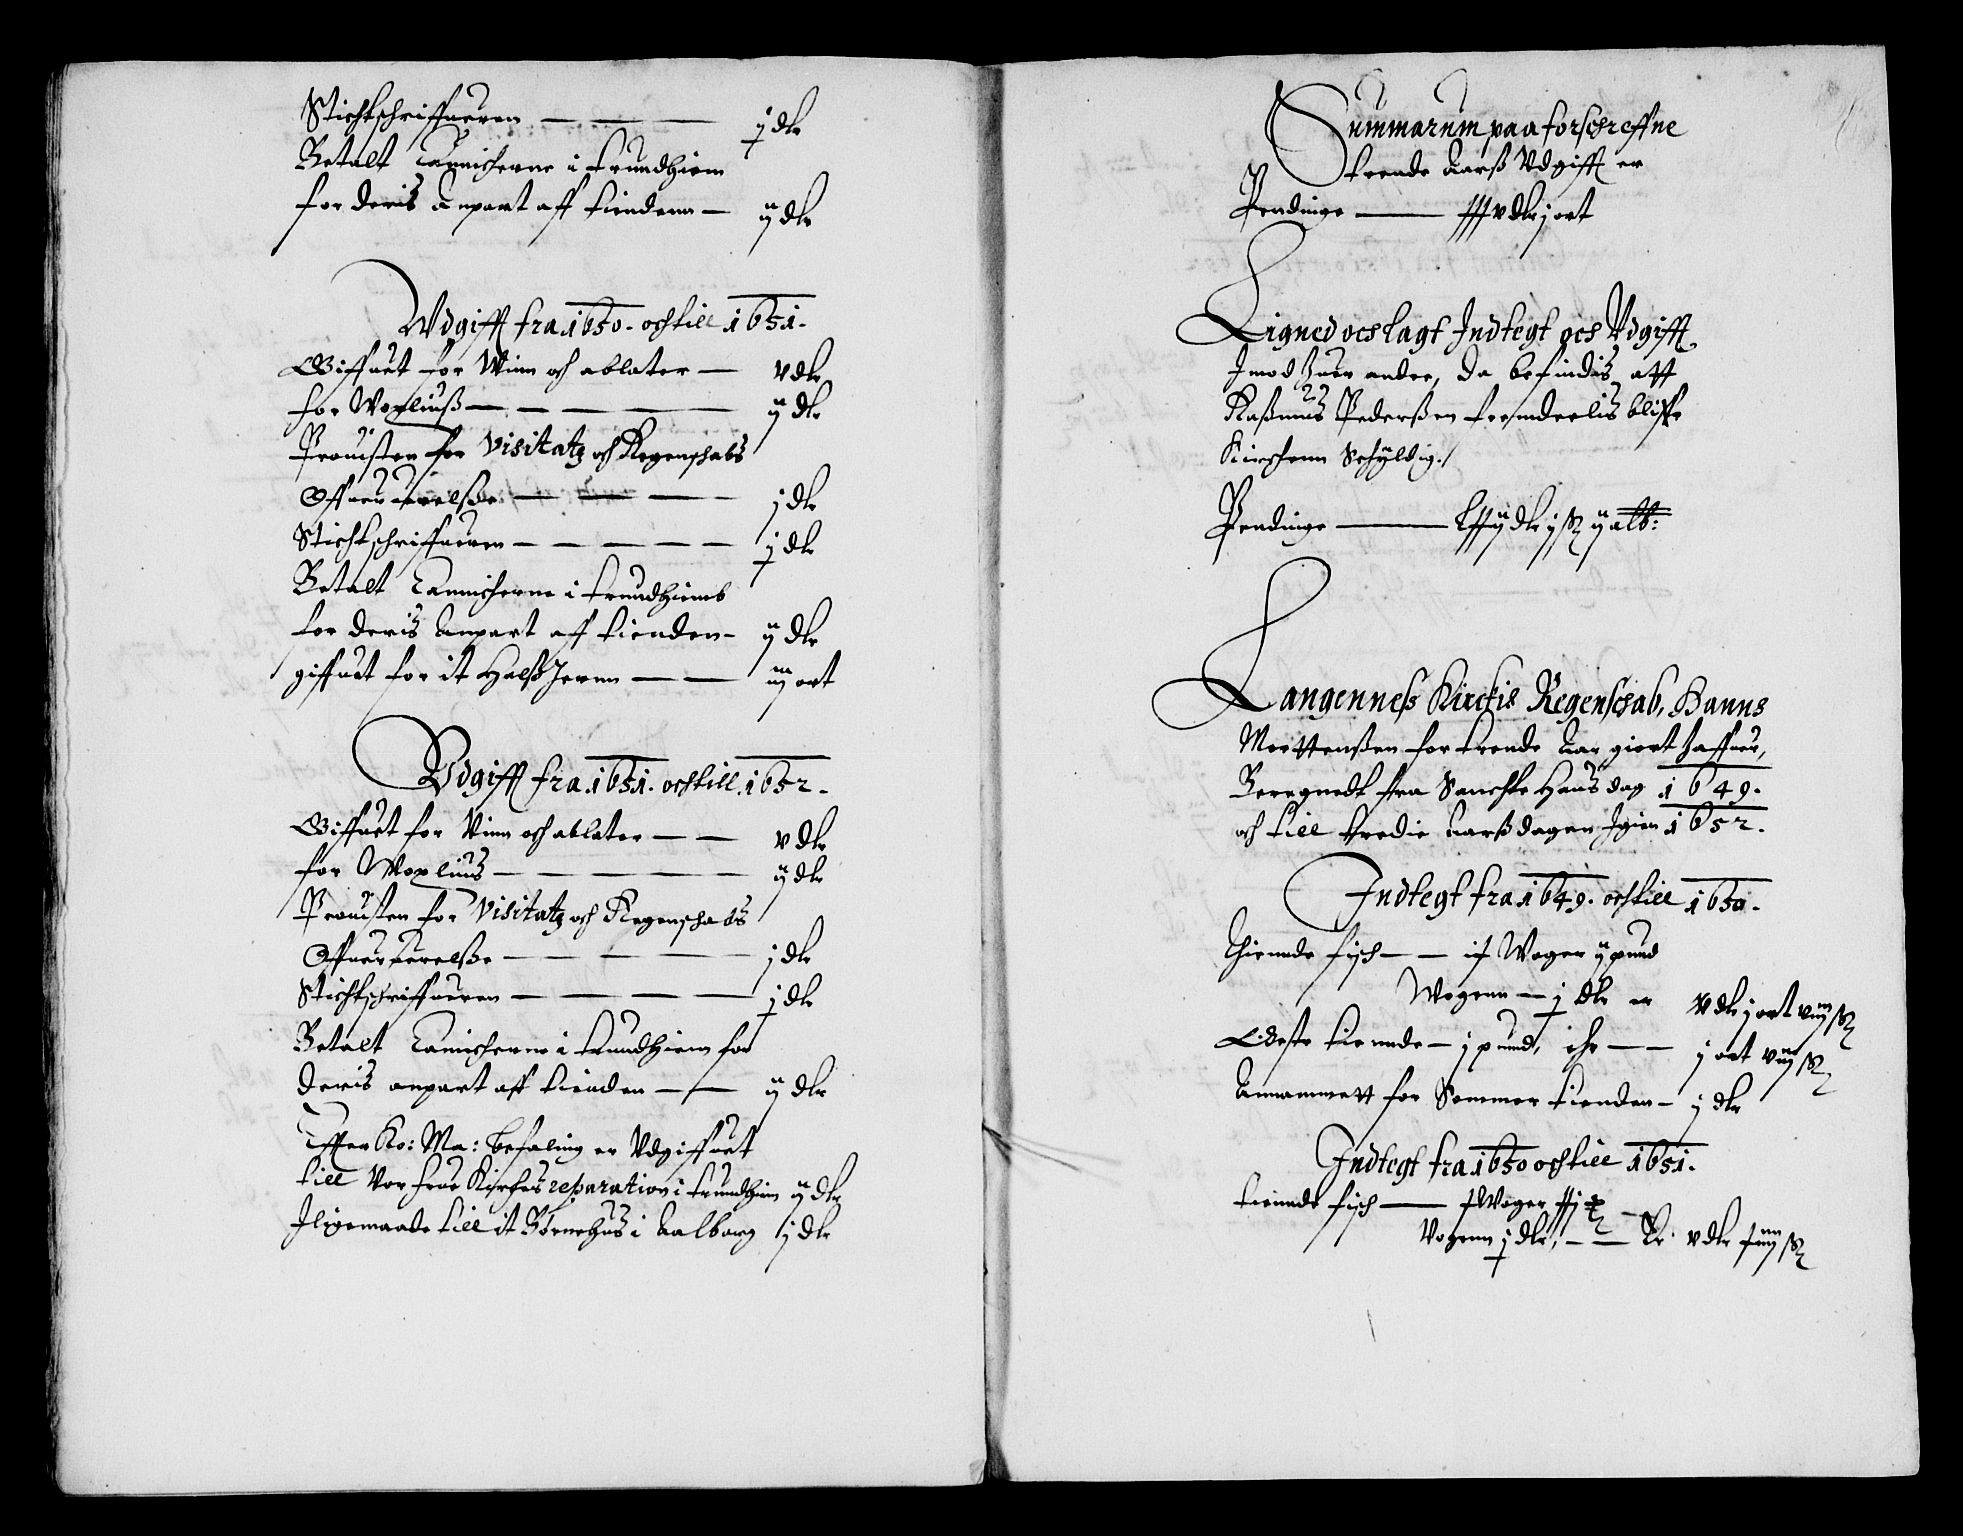 Stichtschriffueren — — — j dlr
Betalt Cannicherne i trundhiem
for deris Anpart aff tiendenn — ij dlr
Wdgifft fra 1650. och till 1651.
Giffuet for Winn och ablater — v dlr
for Woxliuß — — — ij dlr
Prouisten for Visitatz och Regenschabs
Offueruerelße — — — j dlr
Stichtschriffueren — — — — j dlr
Betalt Cannicherne i trundhiemb
for deris Anpart aff tienden — ij dlr
giffuet for it Halß Jernn — — iij ort
Vdgifft fra 1651. och till 1652.
Giffuet for Vinn och ablater — — v dlr
for Woxlius — — — — ij dlr
Prouisten for Visitatz och Regenschabs
Offueruerelße — — — — j dlr
Stichtschriffueren — — — — j dlr
Betalt Cannicherne i trundhiem for
deris anpart aff tienden — — ij dlr
Effter Ko: Ma: befaling er Vdgiffuet
till Vor frue Kirches reparation i trundhiem ij dlr
Iligemaade till it Børnehus i Aalborg j dlr
Summarum paa forschreffne
trende Aarß Vdgifft er
Pendinge — dlr j ort
Ligned och lagt Indtegt och Vdgifft
Imod huer ander, da befindis att
Raßmus Pederßen fremdeelis bliffr
Kirchenn Schyldig./
Pendinge — dlr j ß ij alb:
Langenness Kirckis Regenschab, Hanns
Morttenßen for trende Aar giort haffuer,
Beregnedt fra Sanchte Hans dag 1649.
och till tredie Aarß dagen Igien 1652.
Indtegt fra 1649. och till 1650.
Thiende fisch — — Woger ij pund
Wogenn — j dlr er v dlr j ort viij ß
Edeste tiende — j pund, ehr — — j ort viij ß
Annammett for Sommer tienden — j dlr
Indtegt fra 1650 och till 1651.
tiende fisch — Woger
Vogenn j dlr, — — Er v dlr ß